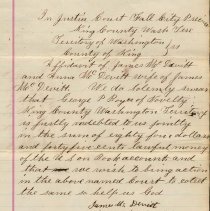 In Justice Court Fall City Precinct
King County Wash Terr
Territory of Washington
County of King } ss
Affidavit of James McDevitt
and Anna McDevitt wife of James
McDevitt. We do solemly swear
that George P Boyn of Novelty
King County Washington Territory
is justly indebted to us jointly
in the sum of eighty four dollars
and forty five cents lawful money
of the U S on Book accounts and
that we wish to bring action
in the above named Court to collect
the same so help us God
James McDevitt